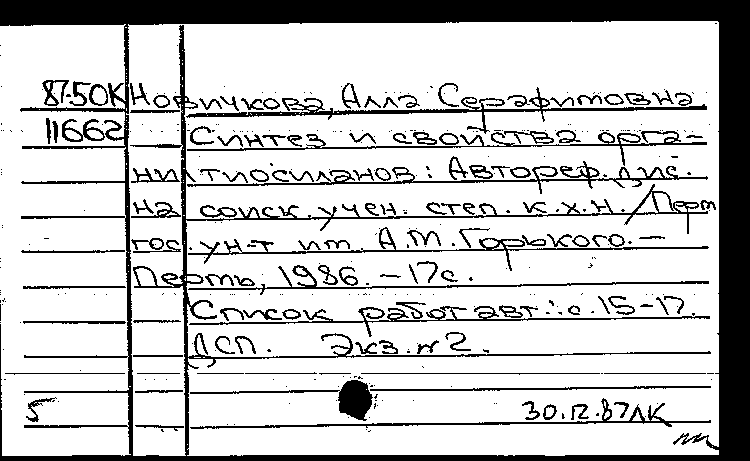 87-50К Новичкова, Алла Серафимовна
11662 Синтез и свойства орга-
нилтиосиланов: Автореф. дис.
на соиск. учен. степ. к.х.н. / Перм
гос. ун-т им. А.М. Горького. —
Пермь, 1986. - 17с.
Список работ авт.: с. 15-17.
ДСП. Экз. № 2.
5 30.12.87 ЛК